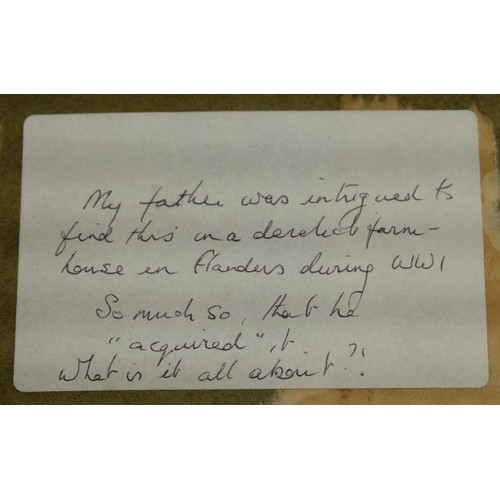 My father was intrigued to
find this in a derelict farm-
house in Flanders during WW1
So much so, that he
"acquired" it
What is it all about?!